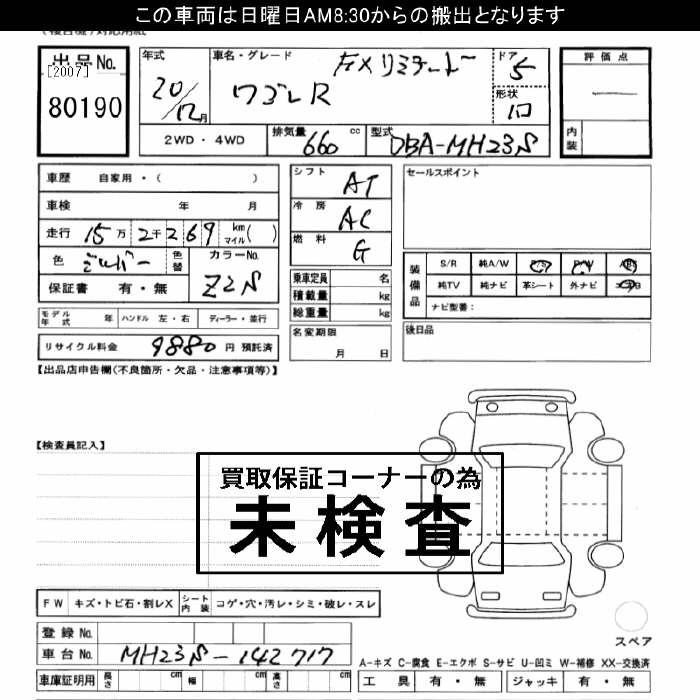 この車両は日曜日AM8:30からの搬出となります
出品No.
[2007]
80190
年式
20/12月
車名・グレード
FXリミテッド
ワゴンR
ドア
5
形状
評価点
内装
2WD・4WD
排気量 660 cc
型式 DBA-MH23S
車歴 自家用・( )
車検 年 月
走行 15万2千269 km マイル( )
色 シルバー 色替 カラーNo. Z2S
保証書 有・無
モデル年式 年 ハンドル 左・右 ディーラー・並行
リサイクル料金 9880 円 預託済
シフト AT
冷房 AC
燃料 G
乗車定員 名
積載量 kg
総重量 kg
名変期限
月 日
セールスポイント
装備品
S/R 純A/W P/S P/W ABS
純TV 純ナビ 革シート 外ナビ
ナビ型番:
後日品
【出品店申告欄(不良箇所・欠品・注意事項等)】
【検査員記入】
買取保証コーナーの為
未検査
FW キズ・トビ石・割レX シート内装 コゲ・穴・汚レ・シミ・破レ・スレ
登録No.
車台No. MH23S-142717
車庫証明用 長さ cm 幅 cm 高さ cm
スペア
A-キズ C-腐食 E-エクボ S-サビ U-凹ミ W-補修 XX-交換済
工具 有・無 ジャッキ 有・無